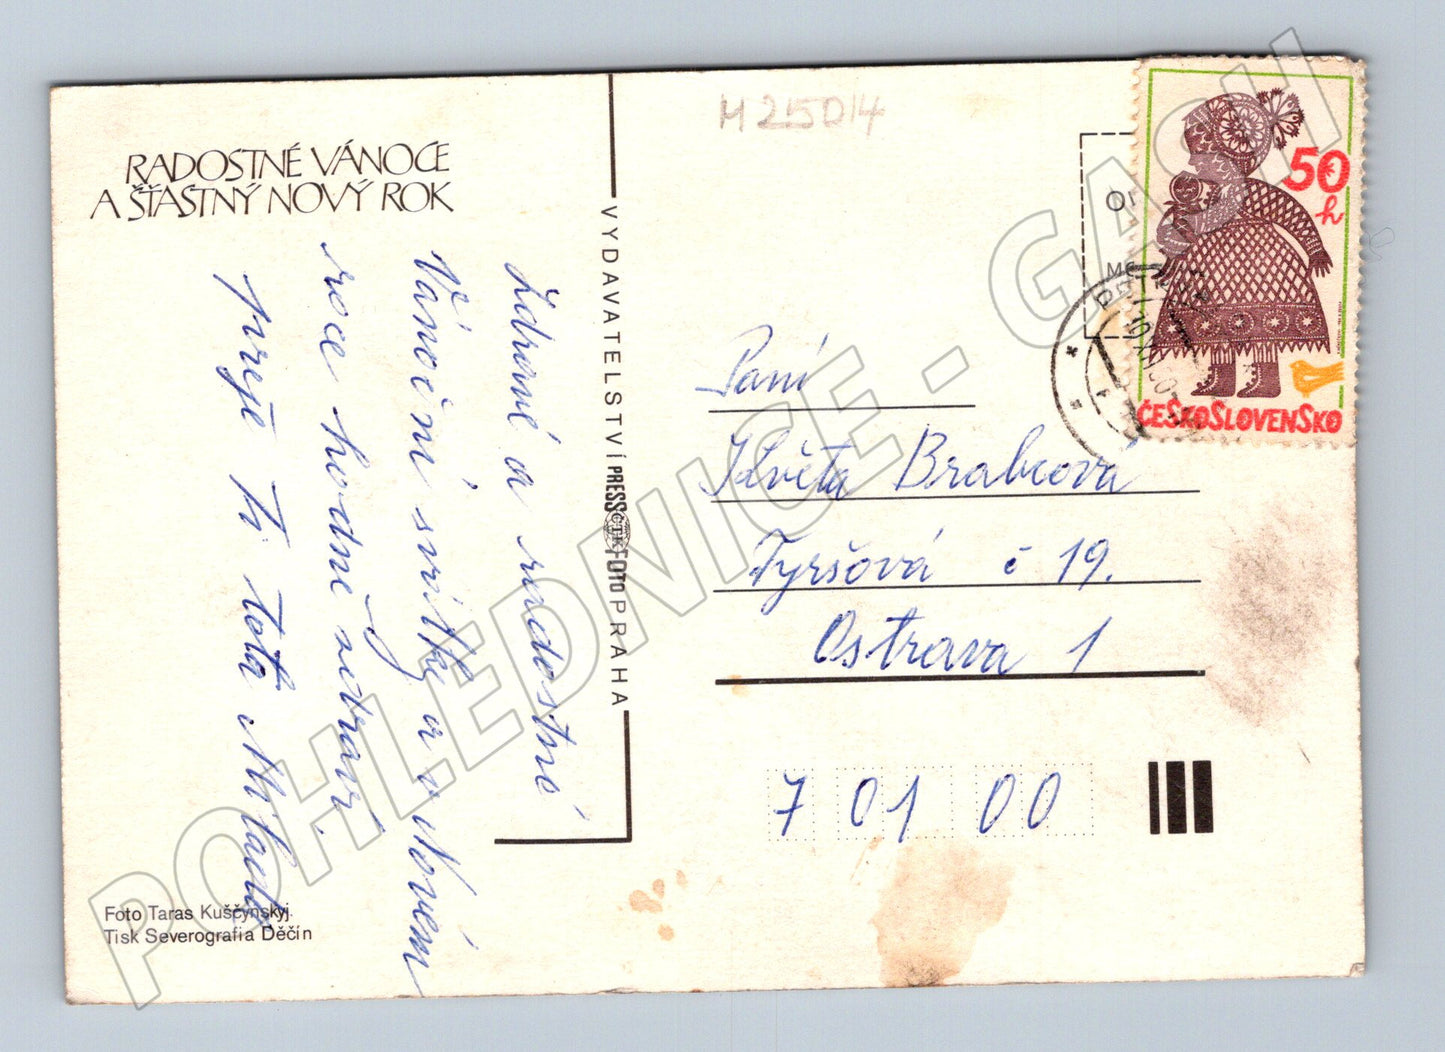 RADOSTNÉ VÁNOCE
A ŠŤASTNÝ NOVÝ ROK
Zdravé a radostné
Vánoční svátky a v Novém
roce hodně zdraví
přeje Ti teta Milada
Foto Taras Kuščynskyj.
Tisk Severografia Děčín
VYDAVATELSTVÍ PRESSFOTO PRAHA
ČTK
M 25014
50 h
ČESKOSLOVENSKO
Paní
Květa Brabcová
Tyršová č 19.
Ostrava 1
7 01 00
POHLEDNICE - GASH